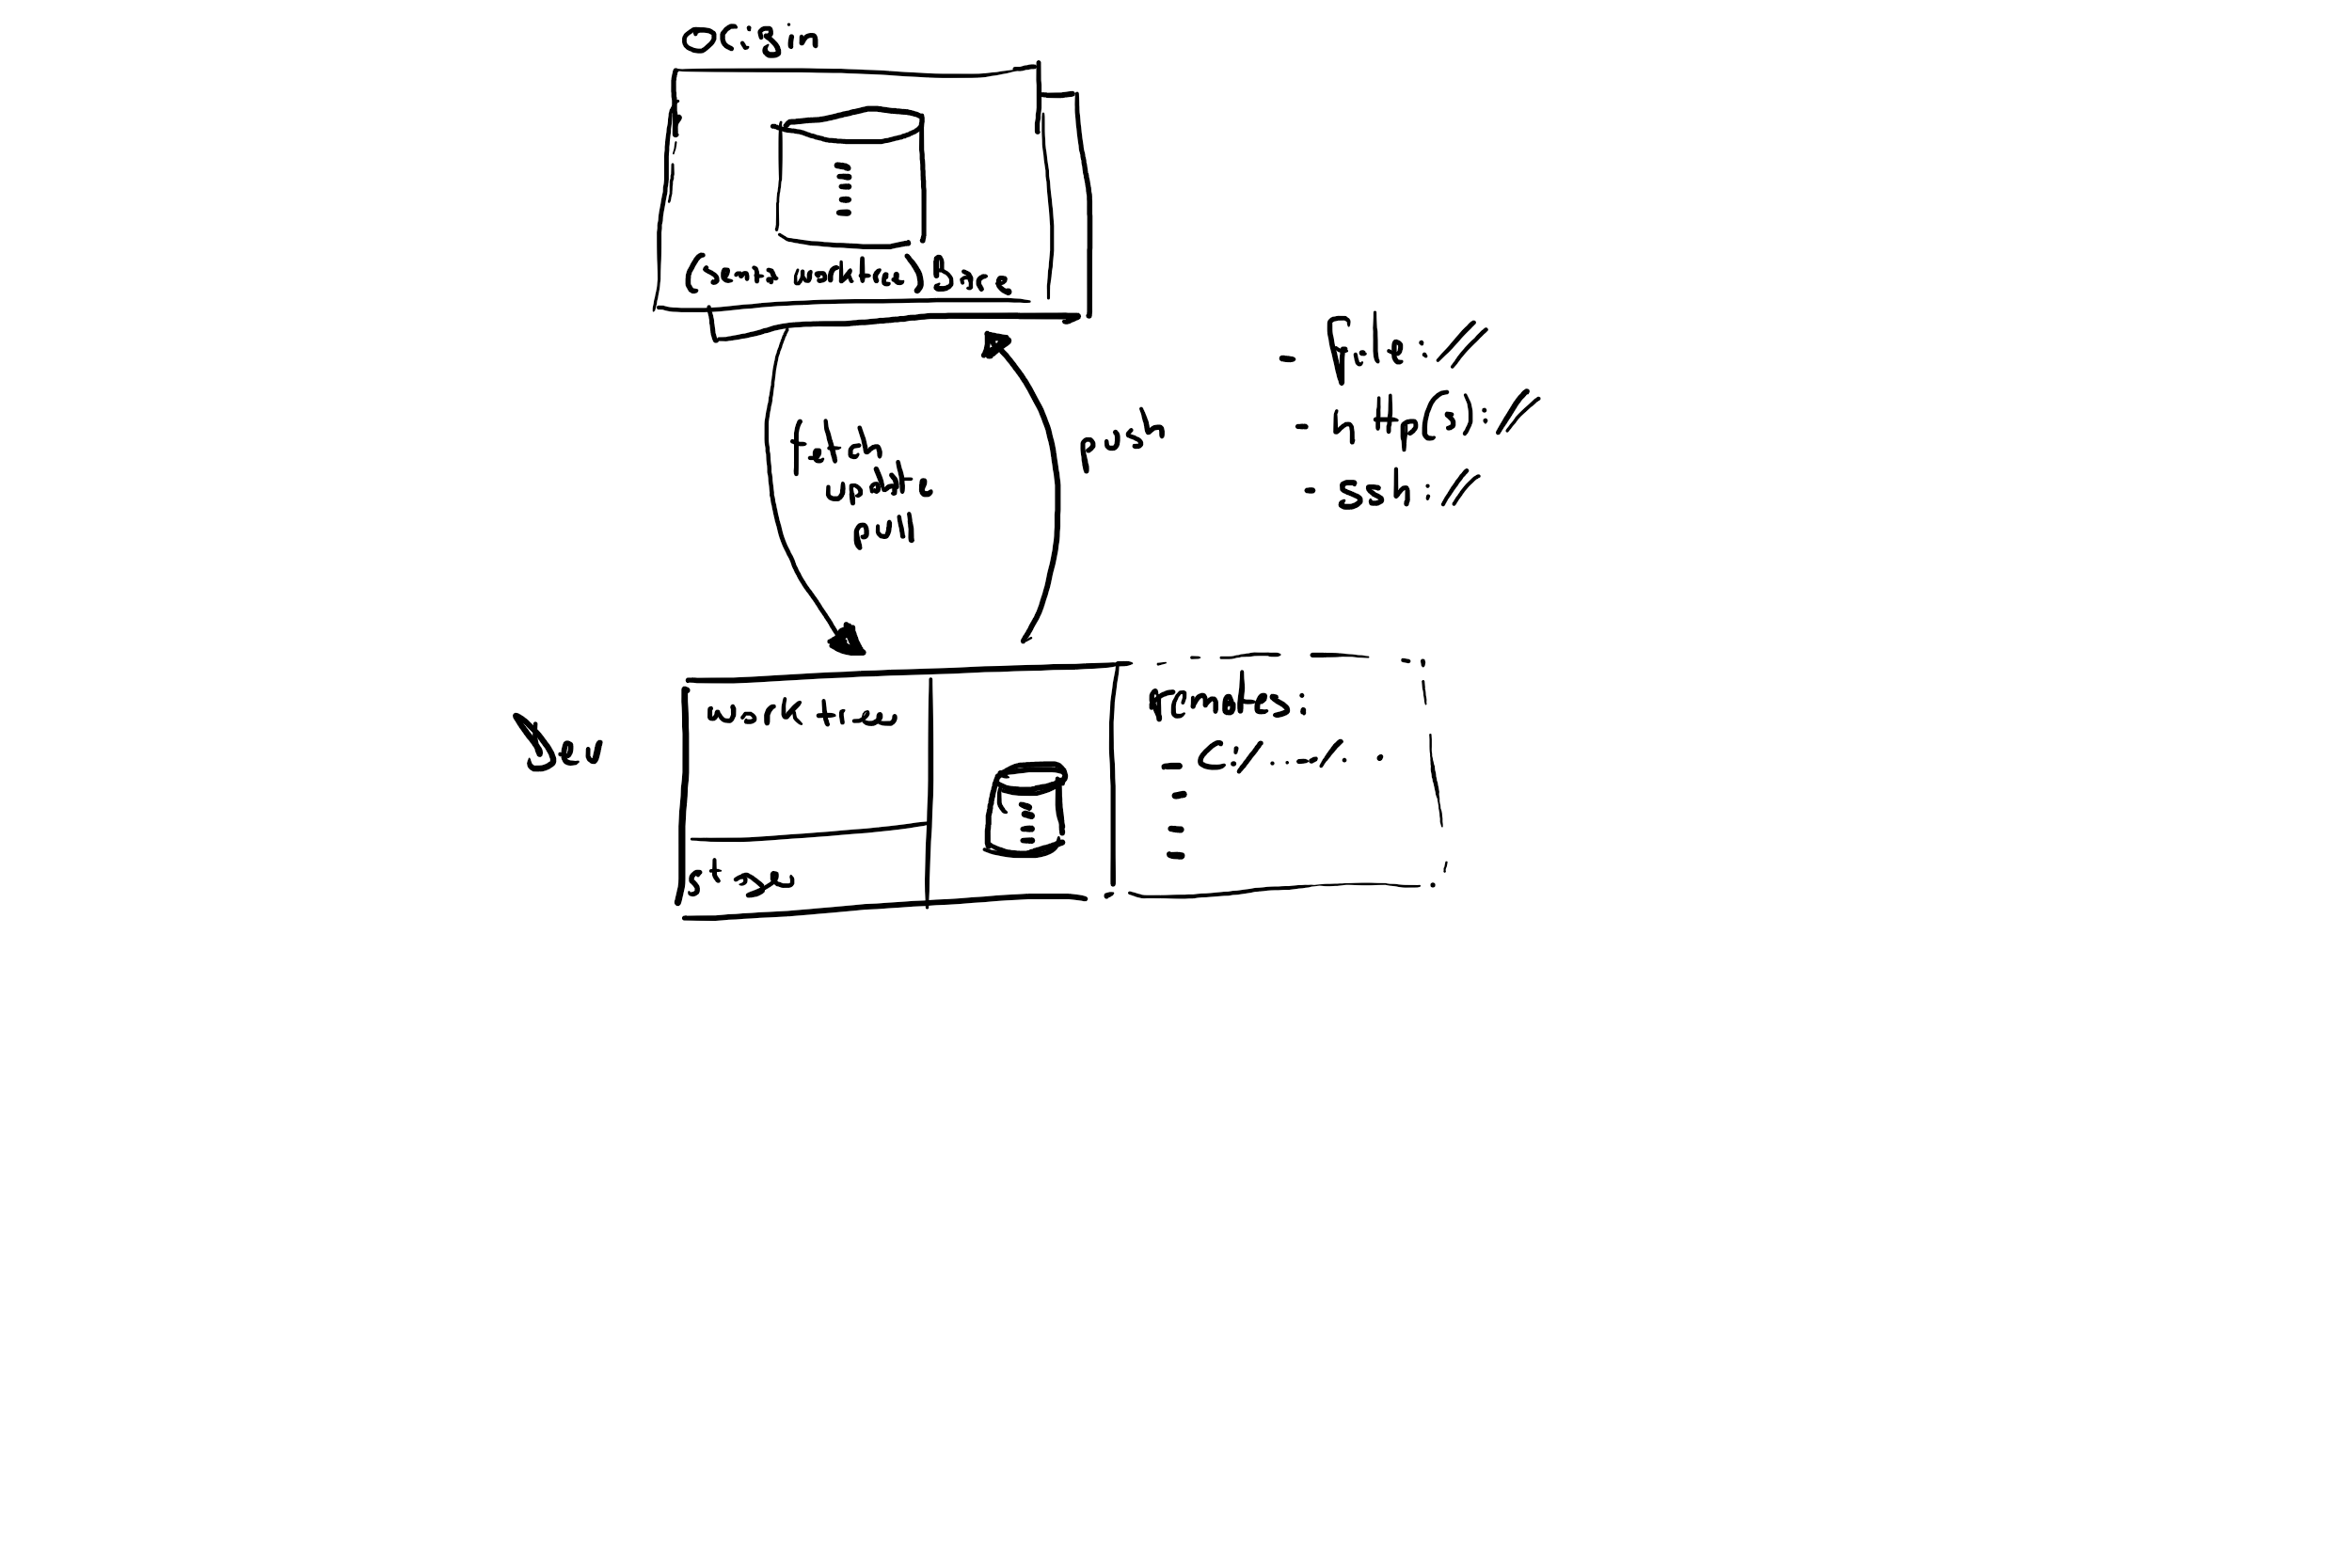 origin
(sentr worktree) Bare
fetch
update
pull
push
- file://
- http(s)://
- ssh://
Dev
worktree
stage
remotes:
- C:/...-/. .
-
-
-